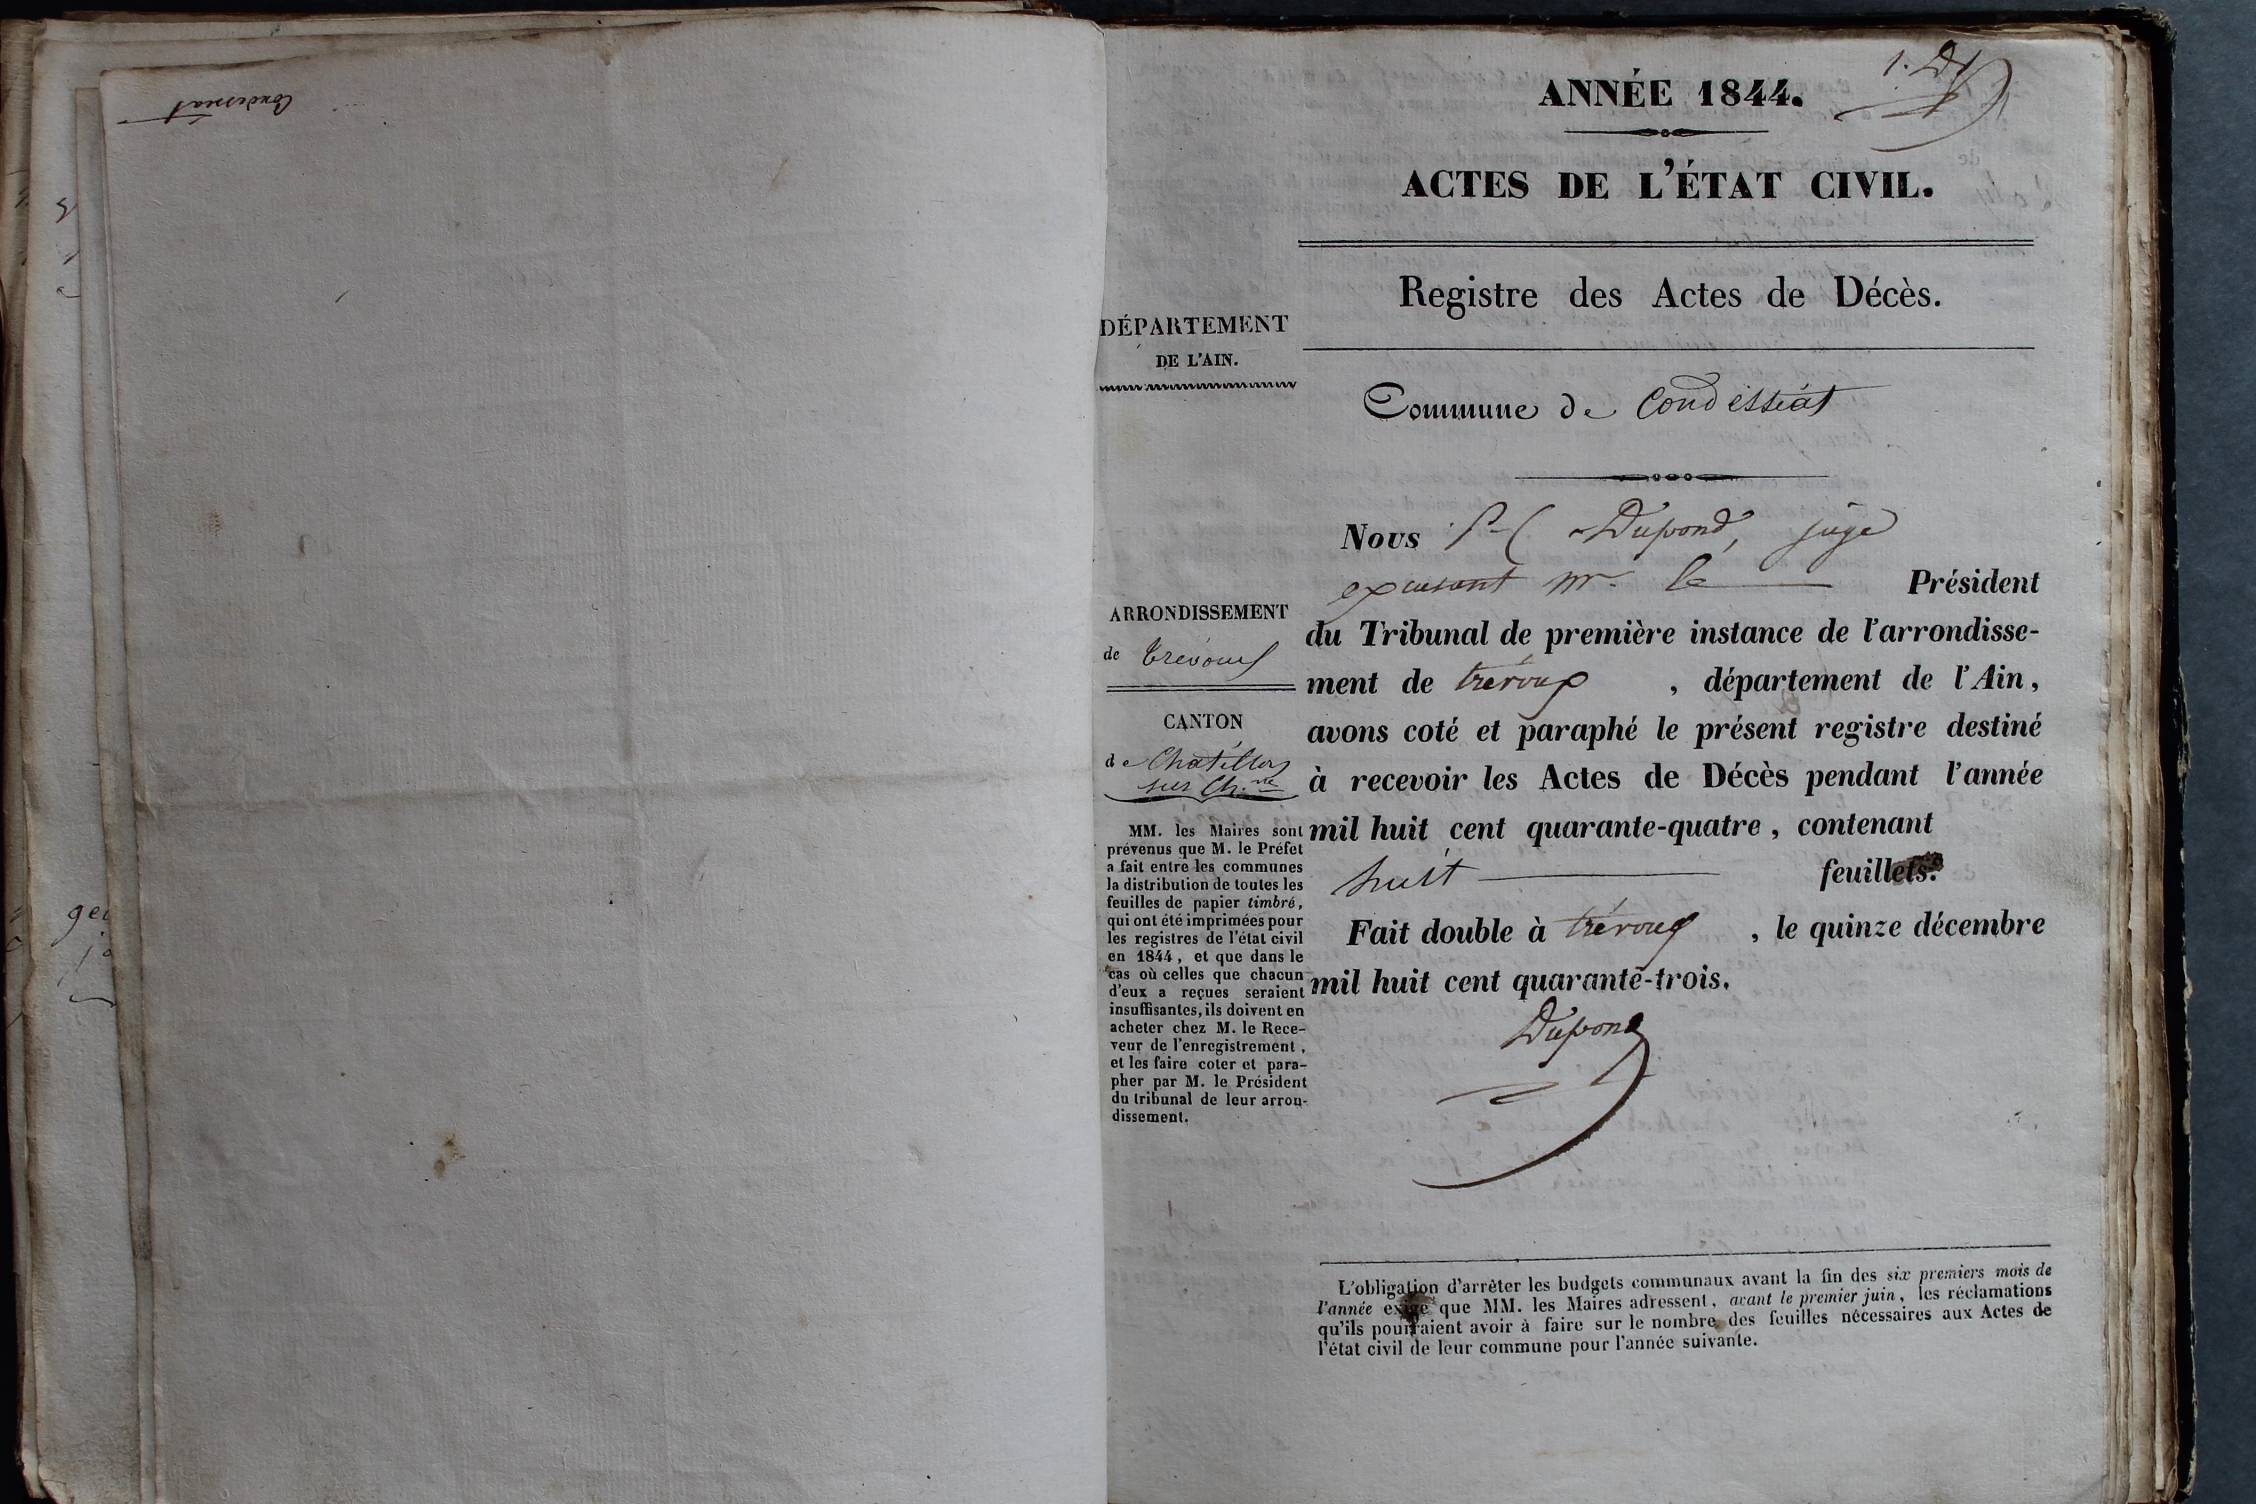 Condesseat
ANNÉE 1844.
ACTES DE L'ÉTAT CIVIL.
Registre des Actes de Décès.
Commune de Condesseat
DÉPARTEMENT
DE L'AIN.
ARRONDISSEMENT
de trévoux
CANTON
de Chatillon
sur Ch.ne
MM. les Maires sont
prévenus que M. le Préfet
a fait entre les communes
la distribution de toutes les
feuilles de papier timbré,
qui ont été imprimées pour
les registres de l'état civil
en 1844, et que dans le
cas où celles que chacun
d'eux a reçues seraient
insuffisantes, ils doivent en
acheter chez M. le Rece-
veur de l'enregistrement,
et les faire coter et para-
pher par M. le Président
du tribunal de leur arron-
dissement.
Nous Dupond, juge
excusant mr. le Président
du Tribunal de première instance de l'arrondisse-
ment de trévoux, département de l'Ain,
avons coté et paraphé le présent registre destiné
à recevoir les Actes de Décès pendant l'année
mil huit cent quarante-quatre, contenant
huit feuillets.
Fait double à trévoux, le quinze décembre
mil huit cent quarante-trois.
Dupond
L'obligation d'arrêter les budgets communaux avant la fin des six premiers mois de
l'année exige que MM. les Maires adressent, avant le premier juin, les réclamations
qu'ils pourraient avoir à faire sur le nombre des feuilles nécessaires aux Actes de
l'état civil de leur commune pour l'année suivante.